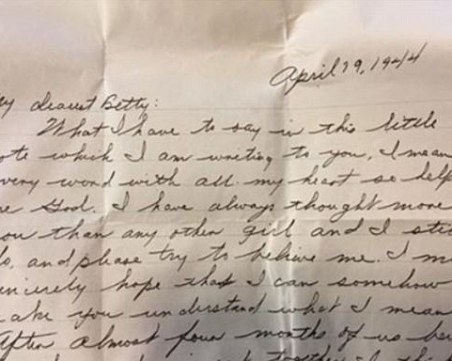 April 19, 1944
y dearest Betty:
What I have to say in this little
ote which I am writing to you, I mean
very word with all my heart so help
e God. I have always thought more
ou than any other girl and I sti
o, and please try to believe me. I m
incerely hope that I can somehow
ake you understand what I mean
After almost four months of us be